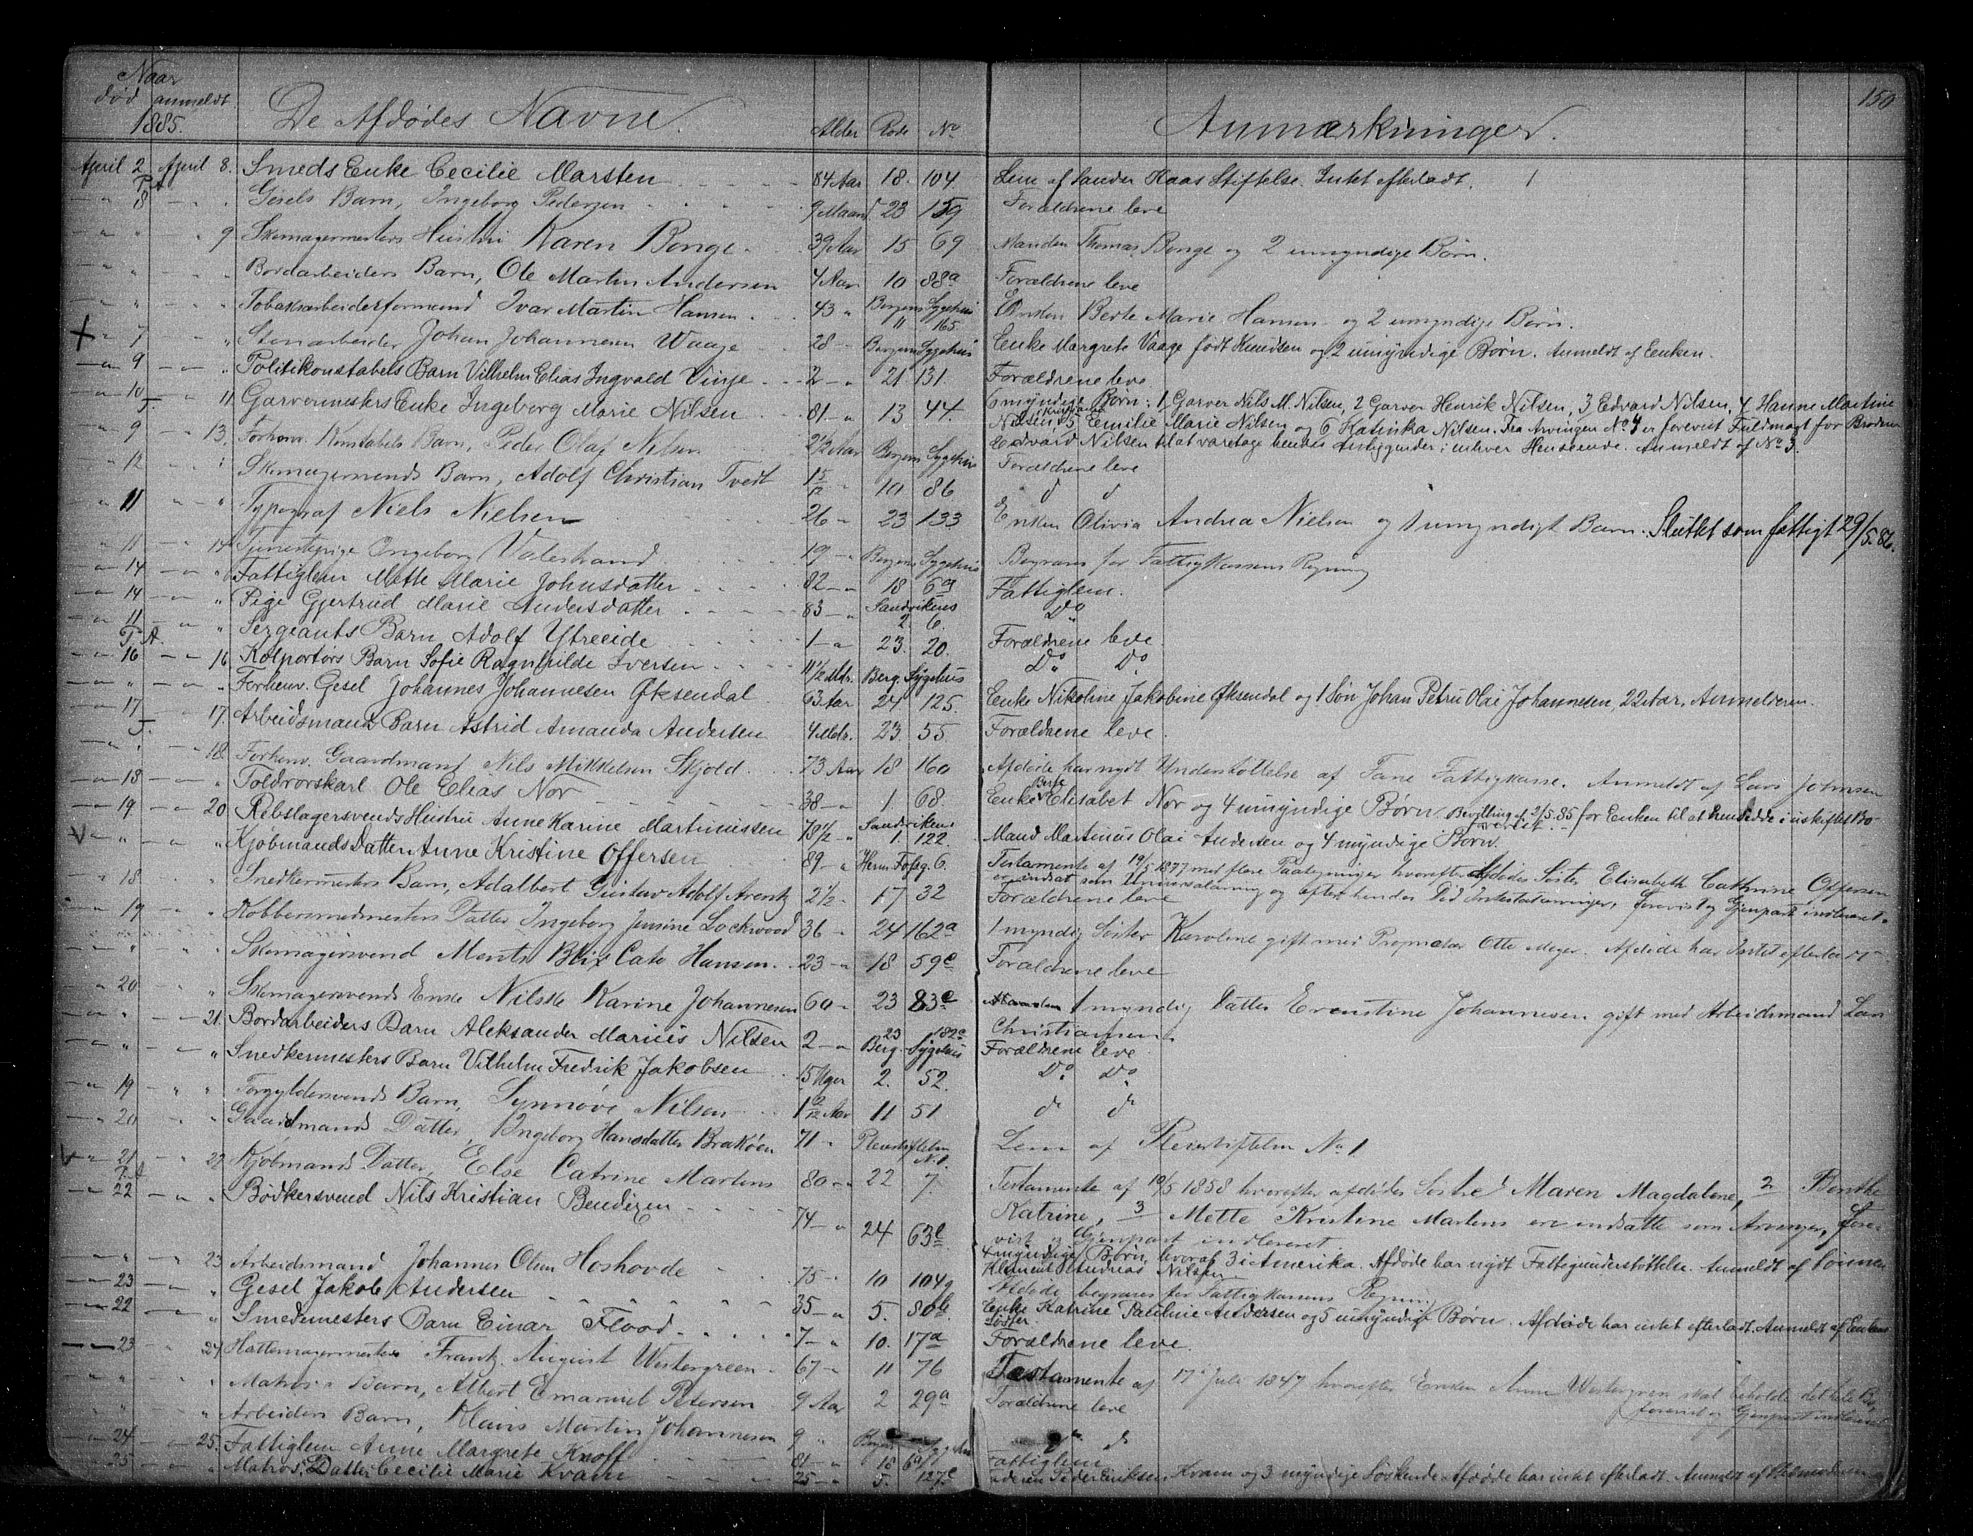 150
Naar
død anmeldt
1885.
De Afdødes Navne. Alder Rode No Anmærkninger.
April 2 April 8. Smeds Enke Cecilie Marsten 84 Aar 18. 104. Lem af Zander Kaas Stiftelse. Intet efterladt.
8 Gesels Barn, Ingeborg Pedersen 9 Maand 23 159 Forældrene leve
9. Skomagermesters Hustru Karen Bonge 39 Aar 15 69 Manden Thomas Bonge og 2 umyndige Børn.
Bordarbeiders Barn, Ole Martin Andersen 4 Aar 10 88a Forældrene leve
Tobaksarbeiderformand Ivar Martin Hansen 43 " Bergens Sygehus Enken Berte Marie Hansen og 2 umyndige Børn.
11 165.
7 Stenarbeider Johan Johannesen Waage 28 Bergens Sygehus Enke Margrete Vaage født Knudsen og 2 umyndige Børn. Anmeldt af Enken.
9 Politikonstabels Barn Vilhelm Elias Ingvald Vinje 2 21 131. Forældrene leve.
10 11. Garvermesters Enke Ingeborg Marie Nilsen 81 13 44. 6 myndige Børn: 1 Garver Nils M. Nilsen, 2 Garver Henrik Nilsen, 3 Edvard Nilsen, 4 Hanne Martine
Nilsen, 5 Emilie Marie Nilsen og 6 Katinka Nilsen. Fra Arvingen No 4 er forevist Fuldmagt for Broderen
Edvard Nilsen til at varetage hendes Anliggender i enhver Henseende. Anmeldt af No 3.
9 13. Forhenv. Konstabels Barn, Peder Olaf Nilsen 2½ Aar Bergens Sygehus Forældrene leve
12 Skomagersvends Barn, Adolf Christian Tvedt 15/12 10 86 d d
11 Typograf Niels Nielsen 26 23 133 Enken Olivia Andrea Nielsen og 1 umyndigt Barn. Sluttet som fattigt 29/5.86.
11 14. Tjenestepige Ingeborg Valestrand 19 Bergens Sygehus Begraves for Fattigkassens Regning
14 Fattiglem Mette Marie Johnsdatter 82 18 6a Fattiglem.
14 Pige Gjertrud Marie Andersdatter 83 Sandvikens Do
2. 6.
11 Sergeants Barn, Adolf Ytreeide 1 23. 20. Forældrene leve
16 16. Kolportørs Barn Sofie Ragnhilde Iversen 11½ Mdr. Berg. Sygehus Do Do
Forhenv. Gesel Johannes Johannesen Øksendal 63 Aar 24 125. Enke Nikoline Jakobine Øksendal og 1 Søn Johan Petru Olai Johannesen, 22 Aar. Anmelderen.
17 17. Arbeidsmands Barn Astrid Amanda Andersen 4 Mdr. 23. 55. Forældrene leve.
18. Forhenv. Gaardmand Nils Mikkelsen Skjold 73 Aar 18 160 Afdøde har nydt Understøttelse af Fane Fattigkasse. Anmeldt af Lars Johnsen
18 Toldrorskarl Ole Elias Nor 38 1. 68. Enke Berte Elisabet Nor og 4 umyndige Børn. Bevilling af 2/5.85 for Enken til at hensidde i uskiftet Bo
forevist.
19 20. Rebslagersvends Hustru Anne Karine Martinussen 78½ Sandvikens Mand Martinus Olai Andersen og 4 myndige Børn.
1. 122.
Kjøbmands Datter Anne Kristine Offersen 89 6. Testamente af 19/5 1877 med flere Paategninger hvorefter Afdødes Søster Elisabeth Cathrine Offersen
er indsat som Universalarving og efter hendes Død Intestatarvinger, forevist og Gjenpart indleveret.
18 Snedkermesters Barn, Adalbert Gustav Adolf Arentz 2½ 17 32 Forældrene leve
19 Kobbersmedmesters Datter Ingeborg Jensine Lockwood 36 24 162a 1 myndig Søster Karoline gift med Otto Meyer. Afdøde har Intet efterladt
Skomagersvend Ments Blix Cato Hansen 23 18 59c Forældrene leve
20 Skomagersvends Enke Karine Johannesen 60 23 83c 1 myndig Datter Ernstine Johannesen gift med Arbeidsmand
Christiansen.
21. Bordarbeiders Barn Aleksander Marius Nilsen 2 23 182c Berg. Sygehus Forældrene leve
Snedkermesters Barn Vilhelm Fredrik Jakobsen 15 Uger 2. 52. Do Do
19 Forgyldersvends Barn, Synnøve Nilsen 1 Aar 11 51 d d
20 Gaardmands Datter, Ingeborg Hansdatter 71 Pleiestiftelsen No 1. Lem af Pleiestiftelsen No 1
21 22. Kjøbmands Datter, Else Catrine Martens 80 22 7 Testamente af 10/5 1858 hvorefter afdødes Søstre 1 Maren Magdalene, 2 Benthe
Katrine, 3 Mette Kristine Martens ere indsatte som Arvinger, fore-
vist og Gjenpart indleveret.
22 Bødkersvend Nils Kristian Bendixen 74 24 63c
23 Arbeidsmand Johannes Olsen Hoshovde 75 10 104g 4 myndige Børn hvoraf 3 i Amerika. Afdøde har nydt Fattigunderstøttelse. Anmeldt af Sønnen
Klement Andreas Nilsen
Afdøde begraves for Fattigkassens Regning
23 Gesel Jakob Andersen 35 5. 80b. Enke Katrine Pauline Andersen og 5 umyndige Børn. Afdøde har intet efterladt. Anmeldt af Enkens
Søster.
22 Smedemesters Barn Einar Flood 7 10. 17a Forældrene leve.
23 24. Hattemagermester Frantz August Westergreen 67 11 76 Testamente af 17 Juli 1847 hvorefter Enken Anne Westergreen skal beholde det hele Bo,
forevist og Gjenpart indleveret
Matros Barn, Albert Emanuel Petersen 9 Aar 2 29a Forældrene leve
Arbeiders Barn, Klaus Martin Johannesen 9 Bergens Sygehus
24 25. Fattiglem Anne Margrete Knoff 81 18 6a Fattiglem
25 Matros Datter Cecilie Marie Kvam 25 5. 127c Peder Eriksen Kvam og 3 myndige Søskende. Afdøde har intet efterladt. Anmeldt af